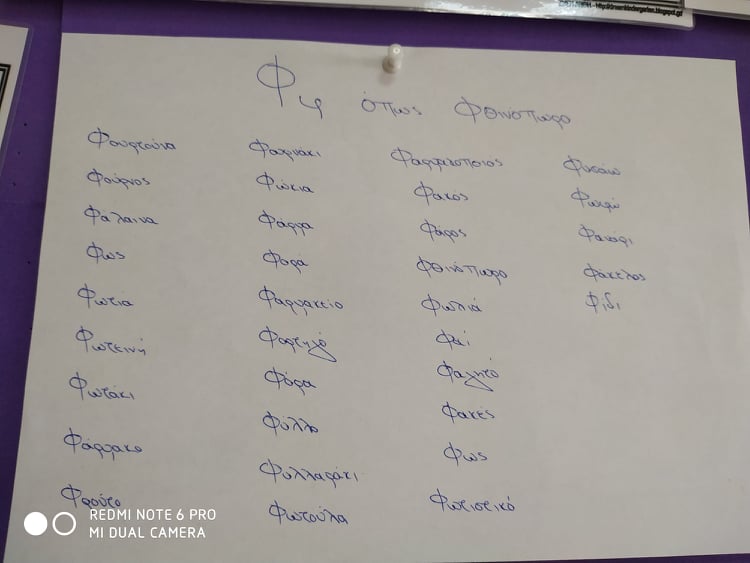 Φφ όπως Φθινόπωρο
Φουρτούνα
Φούρνος
Φάλαινα
Φως
Φωτιά
Φωτεινή
Φωτάκι
Φάρμακο
Φρούτο
Φαρμάκι
Φώκια
Φάρμα
Φορά
Φαρμακείο
Φορτηγό
Φόρα
Φύλλο
Φυλλαράκι
Φωτούλα
Φαρμακοποιός
Φακός
Φάρος
Φθινόπωρο
Φωλιά
Φαΐ
Φαγητό
Φακές
Φως
Φωτιστικό
Φυσάω
Φωφώ
Φανάρι
Φάκελος
Φίδι
REDMI NOTE 6 PRO
MI DUAL CAMERA